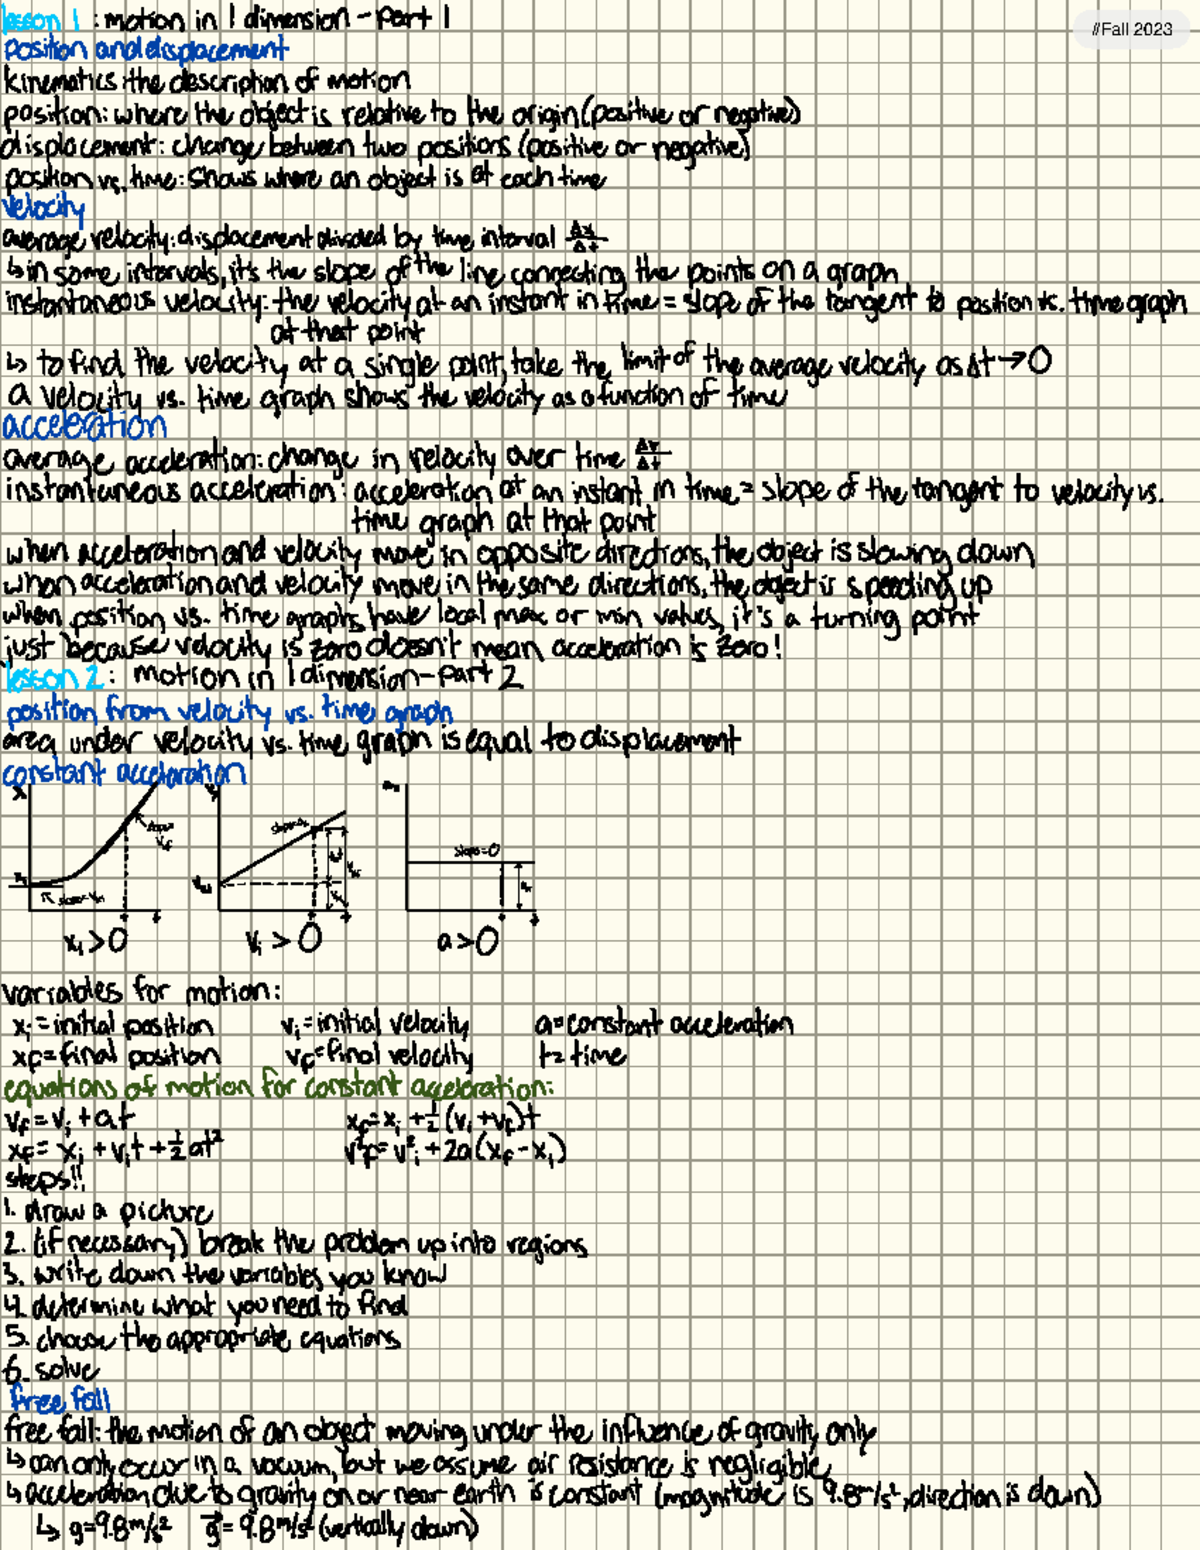 lesson 1: motion in 1 dimension - part 1
#Fall 2023
position and displacement
kinematics: the description of motion
position: where the object is relative to the origin (positive or negative)
displacement: change between two positions (positive or negative)
position vs. time: shows where an object is at each time
velocity
average velocity: displacement divided by time interval Δx/Δt
↳ in some intervals, it's the slope of the line connecting the points on a graph
instantaneous velocity: the velocity at an instant in time = slope of the tangent to position vs. time graph
at that point
↳ to find the velocity at a single point, take the limit of the average velocity as Δt → 0
a velocity vs. time graph shows the velocity as a function of time
acceleration
average acceleration: change in velocity over time Δv/Δt
instantaneous acceleration: acceleration at an instant in time = slope of the tangent to velocity vs.
time graph at that point
when acceleration and velocity move in opposite directions, the object is slowing down
when acceleration and velocity move in the same directions, the object is speeding up
when position vs. time graphs have local max or min values, it's a turning point
just because velocity is zero doesn't mean acceleration is zero!
lesson 2: motion in 1 dimension - part 2
position from velocity vs. time graph
area under velocity vs. time graph is equal to displacement
constant acceleration
x
slope=0
xᵢ>0 vᵢ>0 a>0
variables for motion:
xᵢ=initial position vᵢ=initial velocity a=constant acceleration
xf=final position vf=final velocity t=time
equations of motion for constant acceleration:
vf = vᵢ + at xf = xᵢ + ½(vᵢ + vf)t
xf = xᵢ + vᵢt + ½at² v²f = v²ᵢ + 2a(xf - xᵢ)
steps!!
1. draw a picture
2. (if necessary) break the problem up into regions
3. write down the variables you know
4. determine what you need to find
5. choose the appropriate equations
6. solve
free fall
free fall: the motion of an object moving under the influence of gravity only
↳ can only occur in a vacuum, but we assume air resistance is negligible
↳ acceleration due to gravity on or near earth is constant (magnitude is 9.8 m/s², direction is down)
↳ g=9.8 m/s² g⃗ = 9.8 m/s² (vertically down)